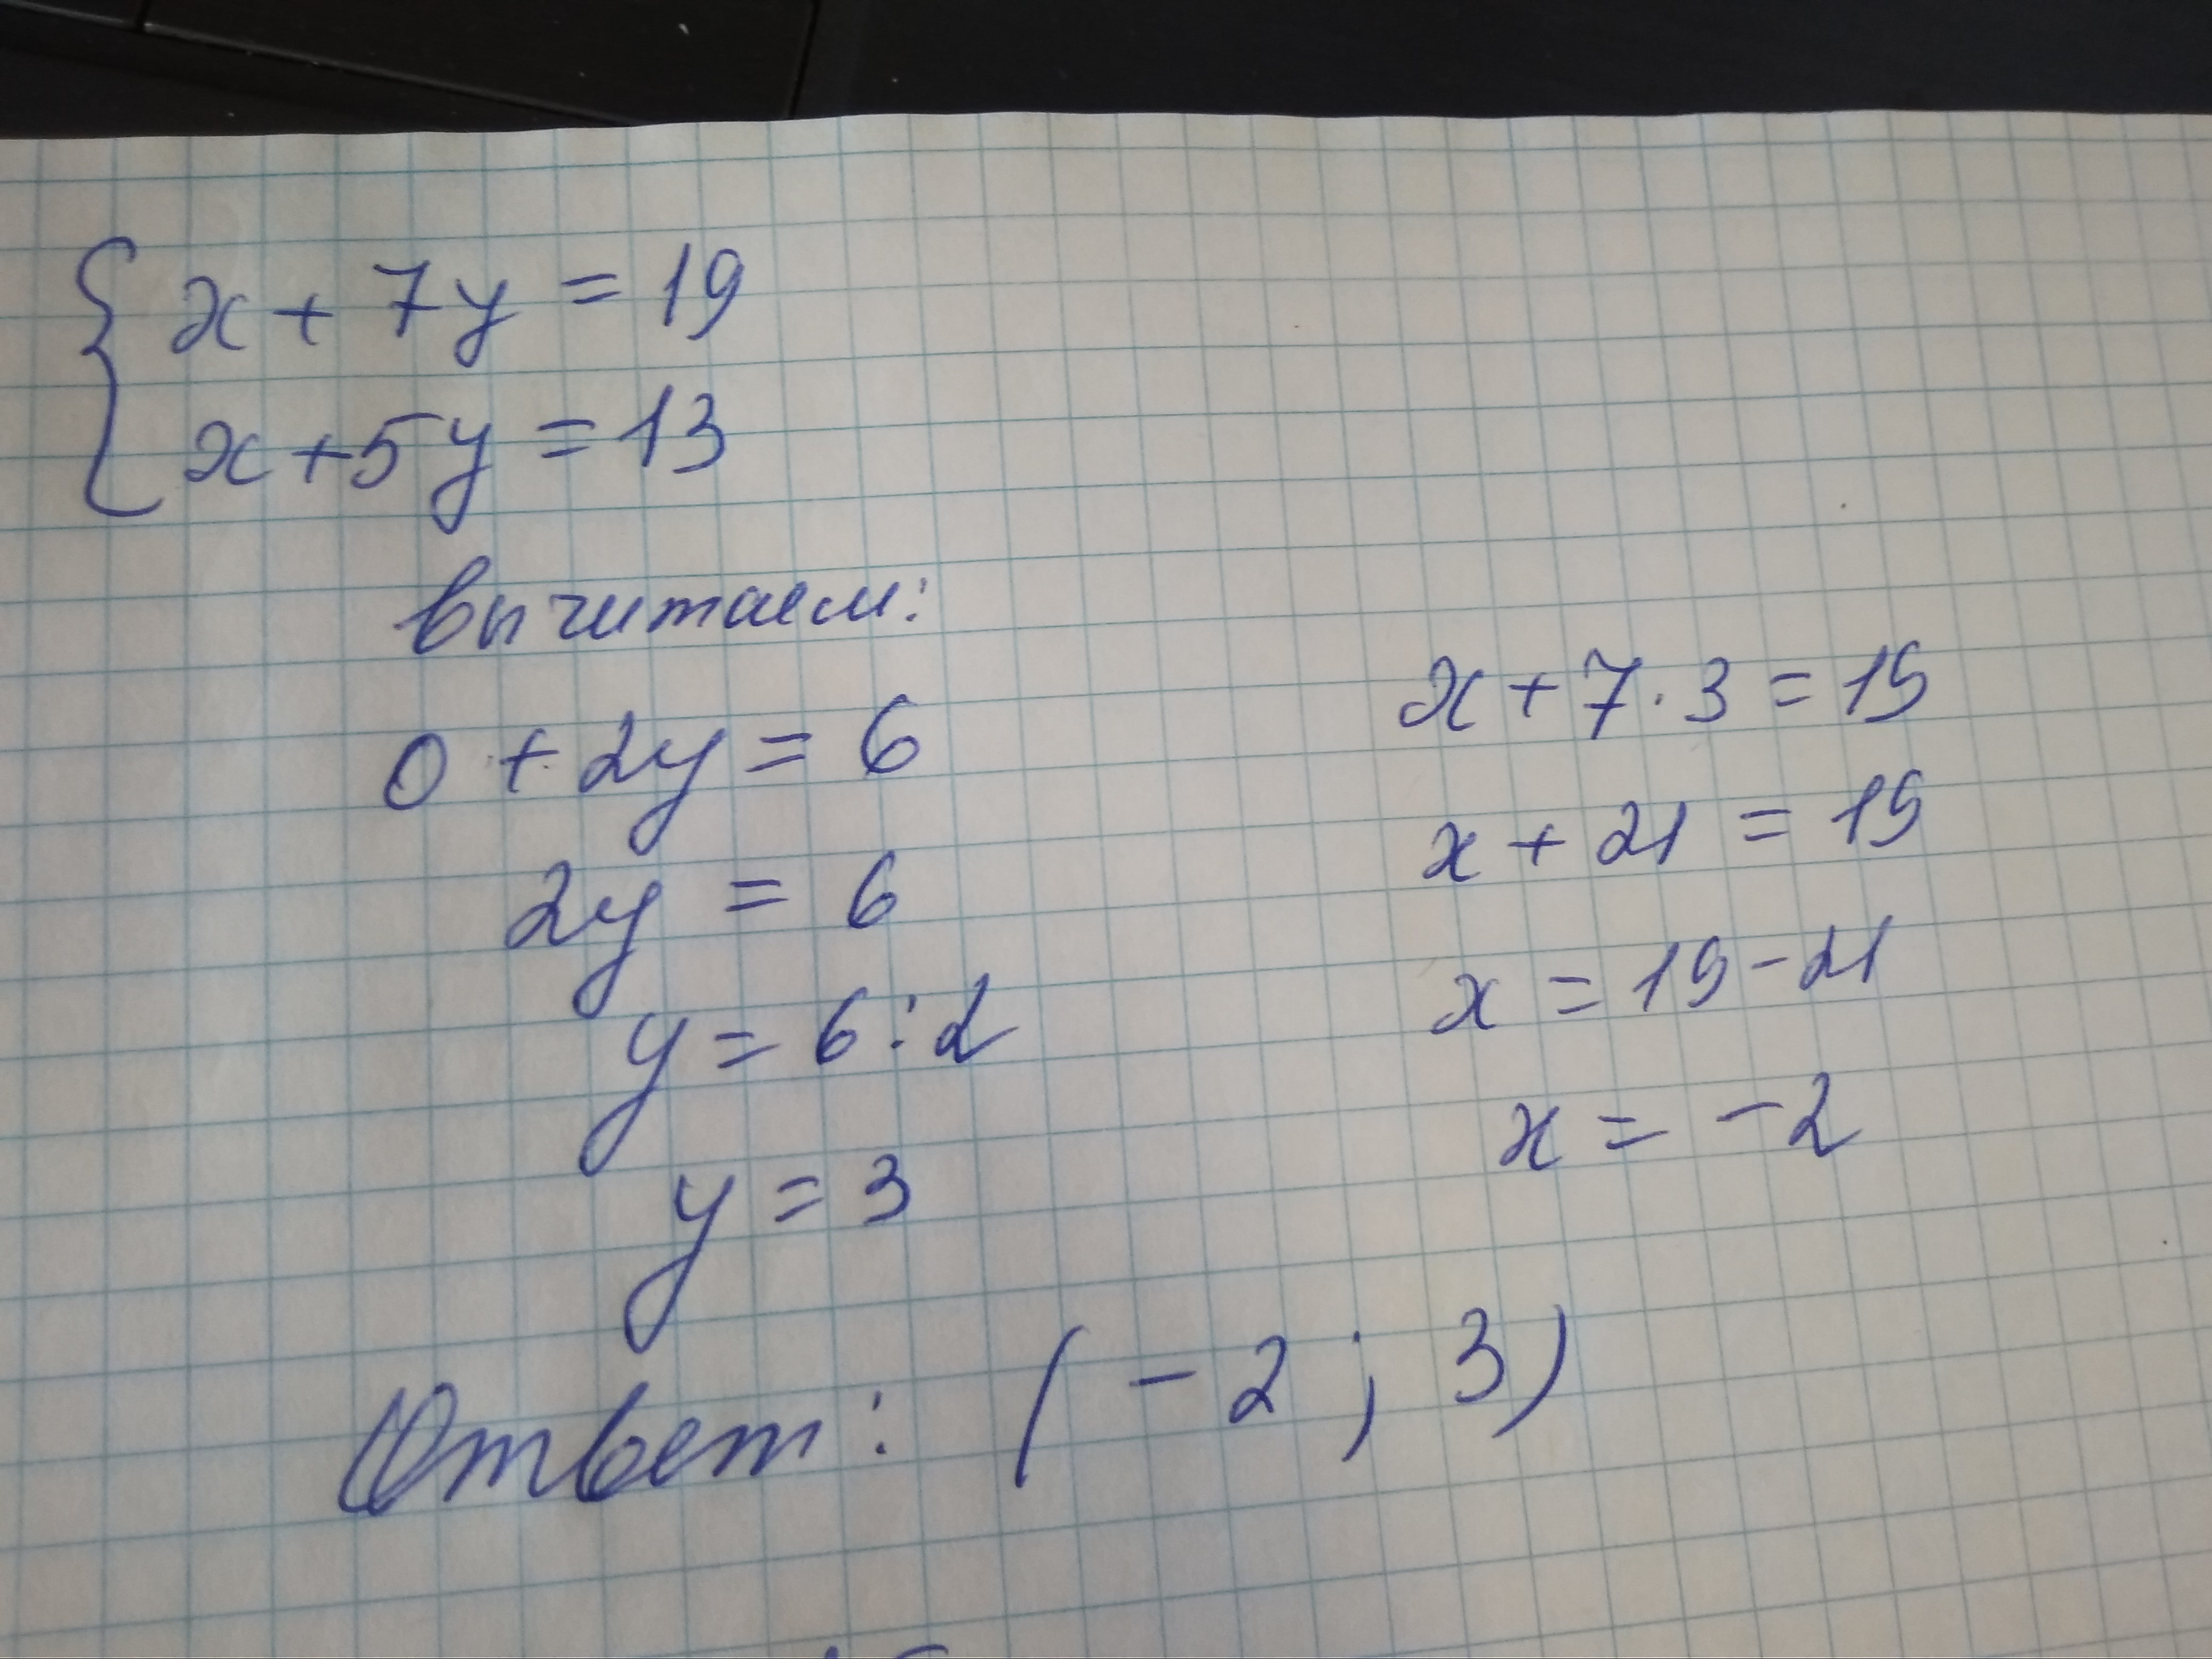 x + 7y = 19
x + 5y = 13
вычитаем:
0 + 2y = 6
2y = 6
y = 6 : 2
y = 3
x + 7 · 3 = 19
x + 21 = 19
x = 19 - 21
x = -2
Ответ: (-2 ; 3)